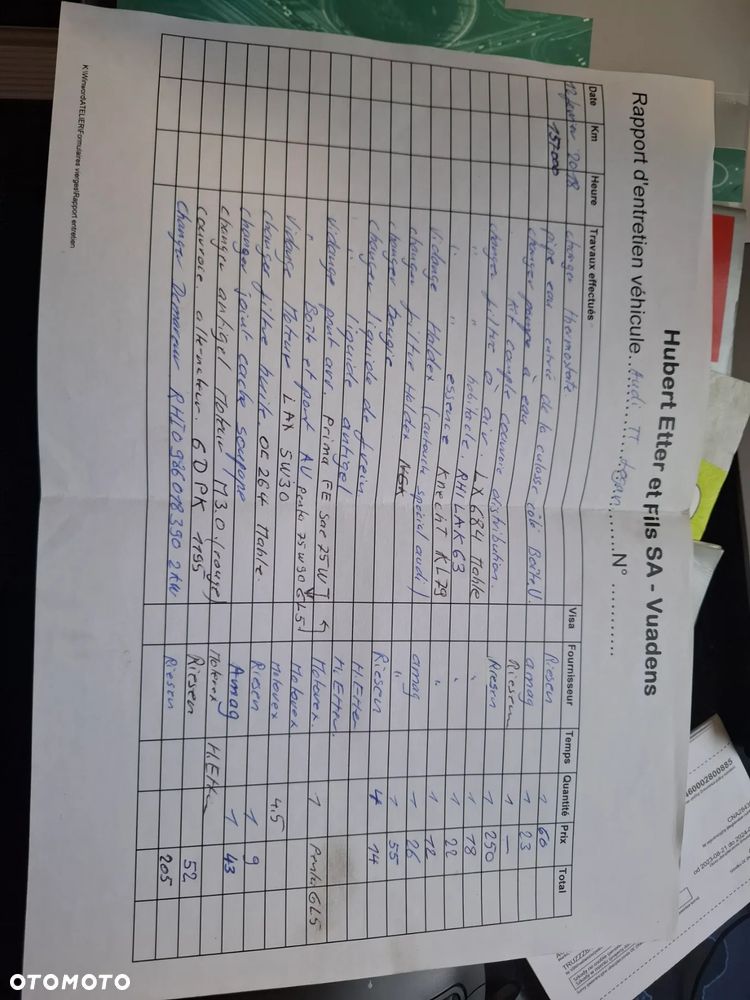 Hubert Etter et Fils SA - Vuadens
Rapport d'entretien véhicule...Audi TT........N° ...........
Date Km Heure Travaux effectués Visa Fournisseur Temps Quantité Prix Total
2018 157000 changer thermostate Riesen 1 60
pipe eau entré de la culasse côté Boîte.V. amag 1 23
changer pompe à eau Riesen 1 —
Kit complet courroie distribution. Riesen 1 250
changer filtre à air. LX 684 Mahle " 1 18
" " habitacle. RHI LAK 63 " 1 22
" " essence Knecht KL 79 " 1 12
Vidange Haldex (cartouche spécial audi) amag 1 26
changer filtre Haldex " 1 55
changer Bougie NGK Riesen 4 14
changer liquide de frein H.Etter
" liquide antigel H.Etter.
vidange pont arr. Prima FE 75W Motorex. 1 GL5
" Boîte et pont AV 75W90 GL5 Motorex
Vidange Moteur LAX 5W30 Motorex 4.5
changer filtre huile. OC 264 Mahle. Riesen 1 9
changer joint cache soupape Amag 1 43
changer antigel Moteur M3.0 (rouge) Motorex
courroie. alternateur. 6DPK 1195 Riesen 52
changer Demareur RHI 0986018390 2KW Riesen 205
K:\Winword\ATELIER\Formulaires vierges\Rapport entretien
OTOMOTO